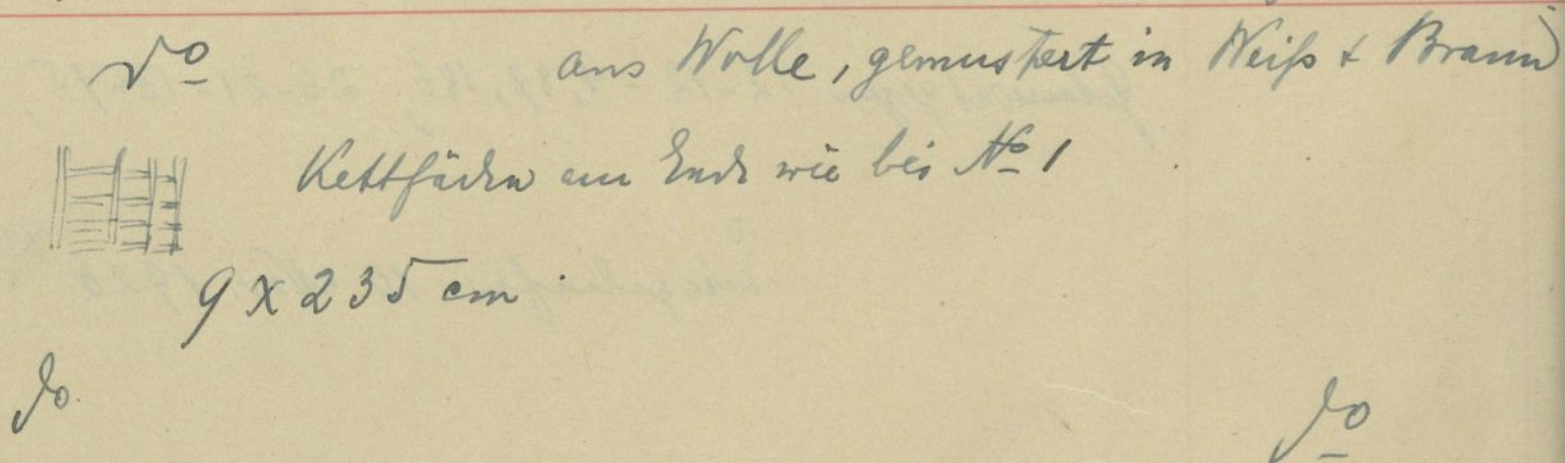 do aus Wolle, gemustert in Weiß & Braun
Kettfäden am Ende wie bei No 1
9 x 235 cm
do. do